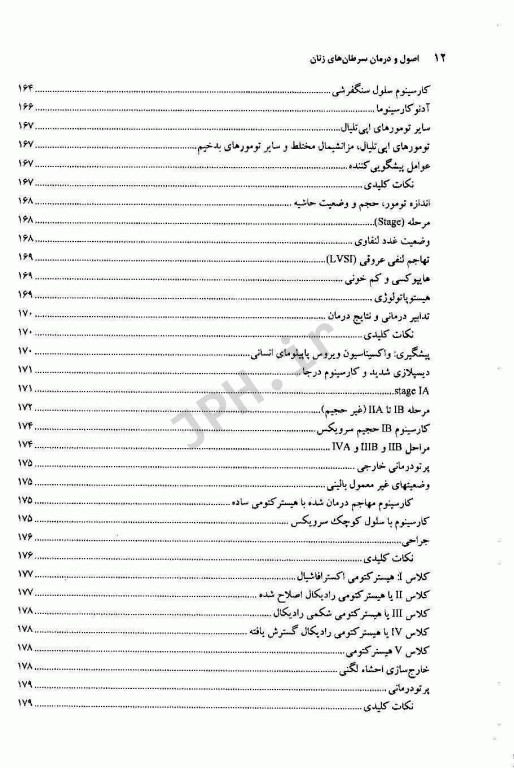 ۱۲ اصول و درمان سرطان‌های زنان
کارسینوم سلول سنگفرشی ۱۶۴
آدنوکارسینوما ۱۶۶
سایر تومورهای اپی‌تلیال ۱۶۷
تومورهای اپی‌تلیال، مزانشیمال مختلط و سایر تومورهای بدخیم ۱۶۷
عوامل پیشگویی‌کننده ۱۶۷
نکات کلیدی ۱۶۷
اندازه تومور، حجم و وضعیت حاشیه ۱۶۸
مرحله (Stage) ۱۶۸
وضعیت غدد لنفاوی ۱۶۸
تهاجم لنفی عروقی (LVSI) ۱۶۹
هایپوکسی و کم خونی ۱۶۹
هیستوپاتولوژی ۱۶۹
تدابیر درمانی و نتایج درمان ۱۷۰
نکات کلیدی ۱۷۰
پیشگیری: واکسیناسیون ویروس پاپیلومای انسانی ۱۷۰
دیسپلازی شدید و کارسینوم درجا ۱۷۱
stage IA ۱۷۱
مرحله IB تا IIA (غیر حجیم) ۱۷۲
کارسینوم IB حجیم سرویکس ۱۷۴
مراحل IIB و IIIB و IVA ۱۷۴
پرتودرمانی خارجی ۱۷۵
وضعیتهای غیر معمول بالینی ۱۷۵
کارسینوم مهاجم درمان شده با هیسترکتومی ساده ۱۷۵
کارسینوم با سلول کوچک سرویکس ۱۷۵
جراحی ۱۷۶
نکات کلیدی ۱۷۶
کلاس I: هیسترکتومی اکسترافاشیال ۱۷۷
کلاس II یا هیسترکتومی رادیکال اصلاح شده ۱۷۷
کلاس III یا هیسترکتومی شکمی رادیکال ۱۷۸
کلاس IV یا هیسترکتومی رادیکال گسترش یافته ۱۷۸
کلاس V هیسترکتومی ۱۷۸
خارج‌سازی احشاء لگنی ۱۷۸
پرتودرمانی ۱۷۹
نکات کلیدی ۱۷۹
JPH.ir